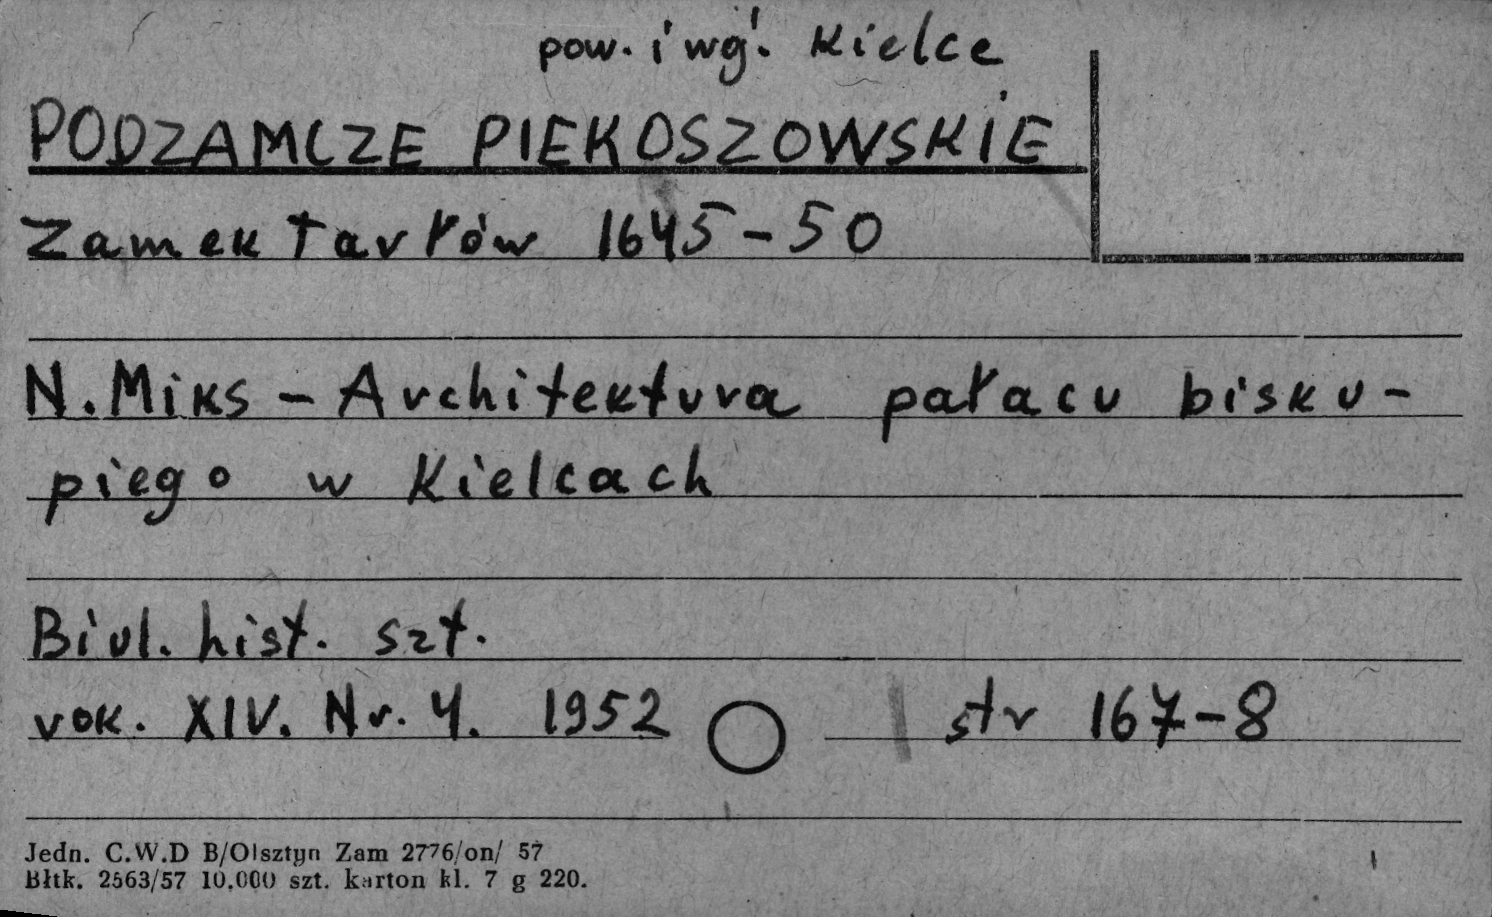 pow. i wg. Kielce
PODZAMCZE PIEKOSZOWSKIE
Zamek Tarłów 1645-50
N. Miks - Architektura pałacu bisku-
piego w Kielcach
Biul. hist. szt.
rok. XIV. Nr. 4. 1952 str 167-8
Jedn. C.W.D B/Olsztyn Zam 2776/on/ 57
Błtk. 2563/57 10.000 szt. karton kl. 7 g 220.